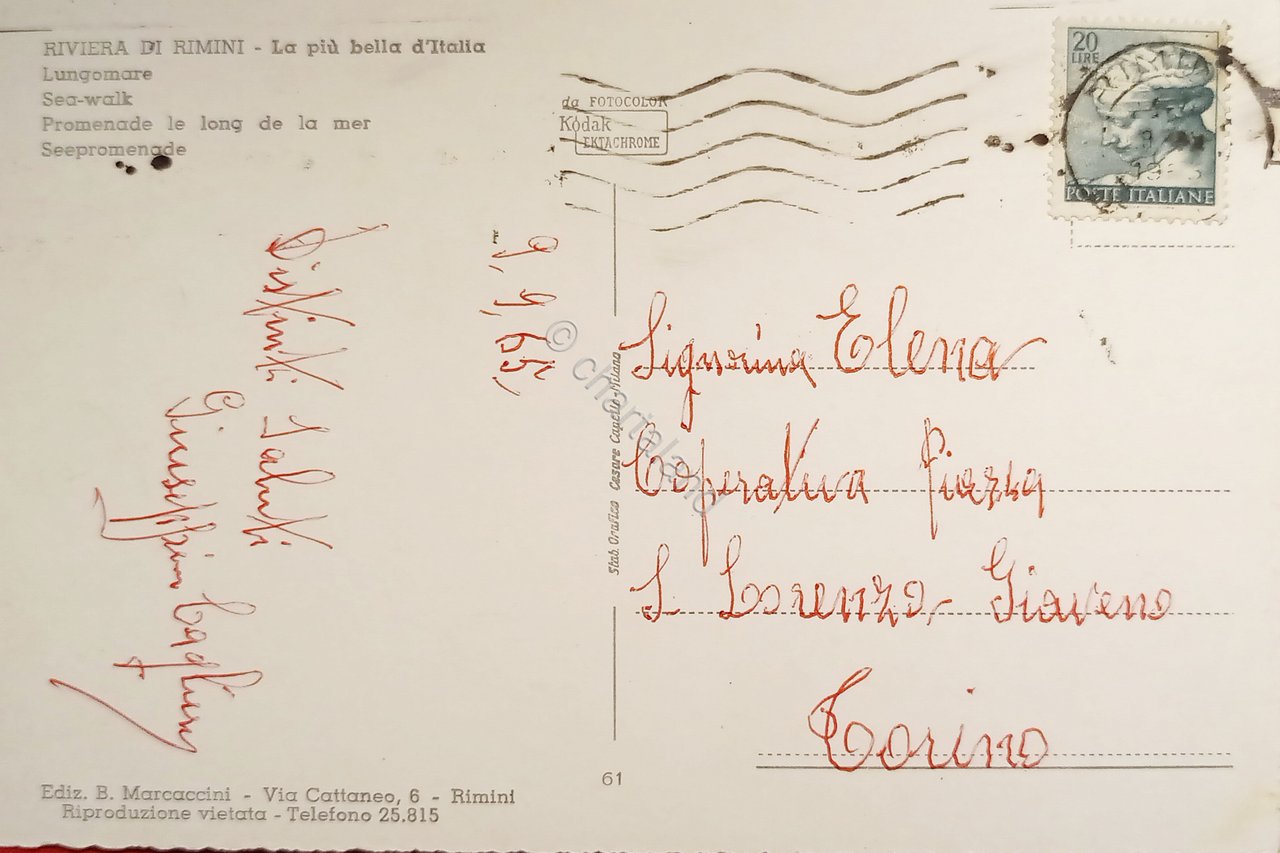 RIVIERA DI RIMINI - La più bella d'Italia
Lungomare
Sea-walk
Promenade le long de la mer
Seepromenade
da FOTOCOLOR
Kodak
EKTACHROME
20
LIRE
POSTE ITALIANE
9, 9, 65,
Distinti Saluti
Giuseppina
Signorina Elena
Coperativa Piazza
S. Lorenzo - Giaveno
Torino
Stab. Grafico Cesare Capello - Milano
© chartaland
61
Ediz. B. Marcaccini - Via Cattaneo, 6 - Rimini
Riproduzione vietata - Telefono 25.815